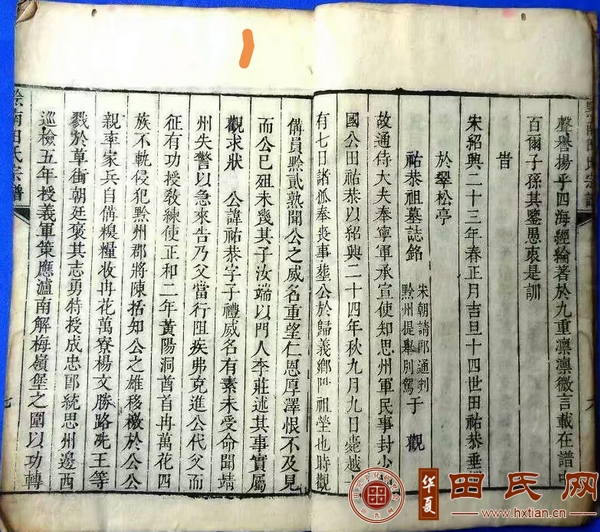 聲譽揚乎四海經綸著於九重凛凛微言載在譜
百爾子孫其鑒思哀是訓
旹
宋紹興二十三年春正月吉旦十四世田祐恭垂
於翠松亭
祐恭祖墓誌銘
宋朝請郎通判
黔州提舉別駕
于觀
故通侍大夫奉寧軍承宣使知思州軍民事封少
國公田祐恭以紹興二十四年秋九月九日薨越
有七日諸孤奉喪事塟公於歸義鄉祖塋也時觀
備員黔貳熟聞公之威名重望仁恩厚澤恨不及見
而公已殂未幾其子汝端以門人李莊述其事實屬
觀求狀 公諱祐恭字子禮威名有素未受命聞靖
州失警以急來告乃父當行阻疾弗克進公代父而
征有功授敎練使正和二年黃陽洞酋首冉萬花四
族不軌侵犯黔州郡將陳括知公之雄移檄於公公
親率家兵自備糗糧收冉花萬寮楊文勝路冼王等
戮於草街朝廷褒其志勇特授成忠郎統思州邊西
巡檢五年授義軍策應瀘南解梅嶺堡之圍以功轉
黔南田氏宗譜
七
華夏
田氏网
www.hxtian.cn